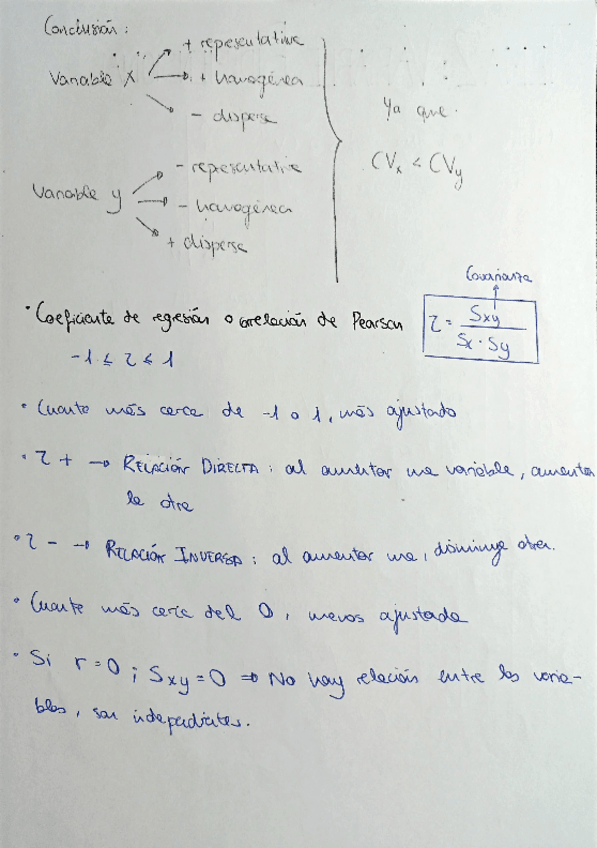 Conclusión:
Variable X
+ representativa
+ homogénea
- dispersa
Variable y
- representativa
- homogénea
+ dispersa
Ya que.
CVx < CVy
· Coeficiente de regresión o correlación de Pearson
Covarianza
r = Sxy / Sx · Sy
-1 ≤ r ≤ 1
· Cuanto más cerca de -1 o 1, más ajustado
· r + → RELACIÓN DIRECTA: al aumentar una variable, aumenta
la otra
· r - → RELACIÓN INVERSA: al aumentar una, disminuye otra.
· Cuanto más cerca del 0, menos ajustada
· Si r=0 ; Sxy=0 ⇒ No hay relación entre las varia-
bles, son independientes.